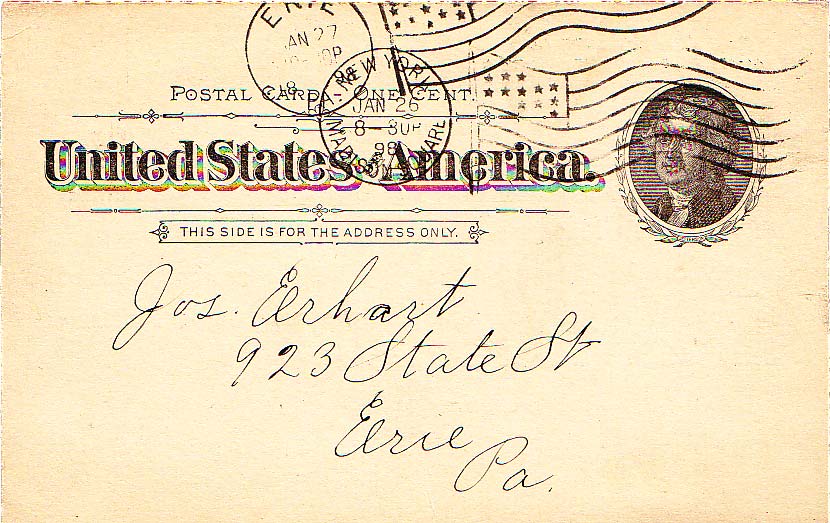 ERIE
JAN 27
98
POSTAL CARD - ONE CENT.
NEW YORK
JAN 26
8-30P
98
MADISON SQUARE
United States of America.
THIS SIDE IS FOR THE ADDRESS ONLY.
Jos. Erhart
923 State St
Erie
Pa.